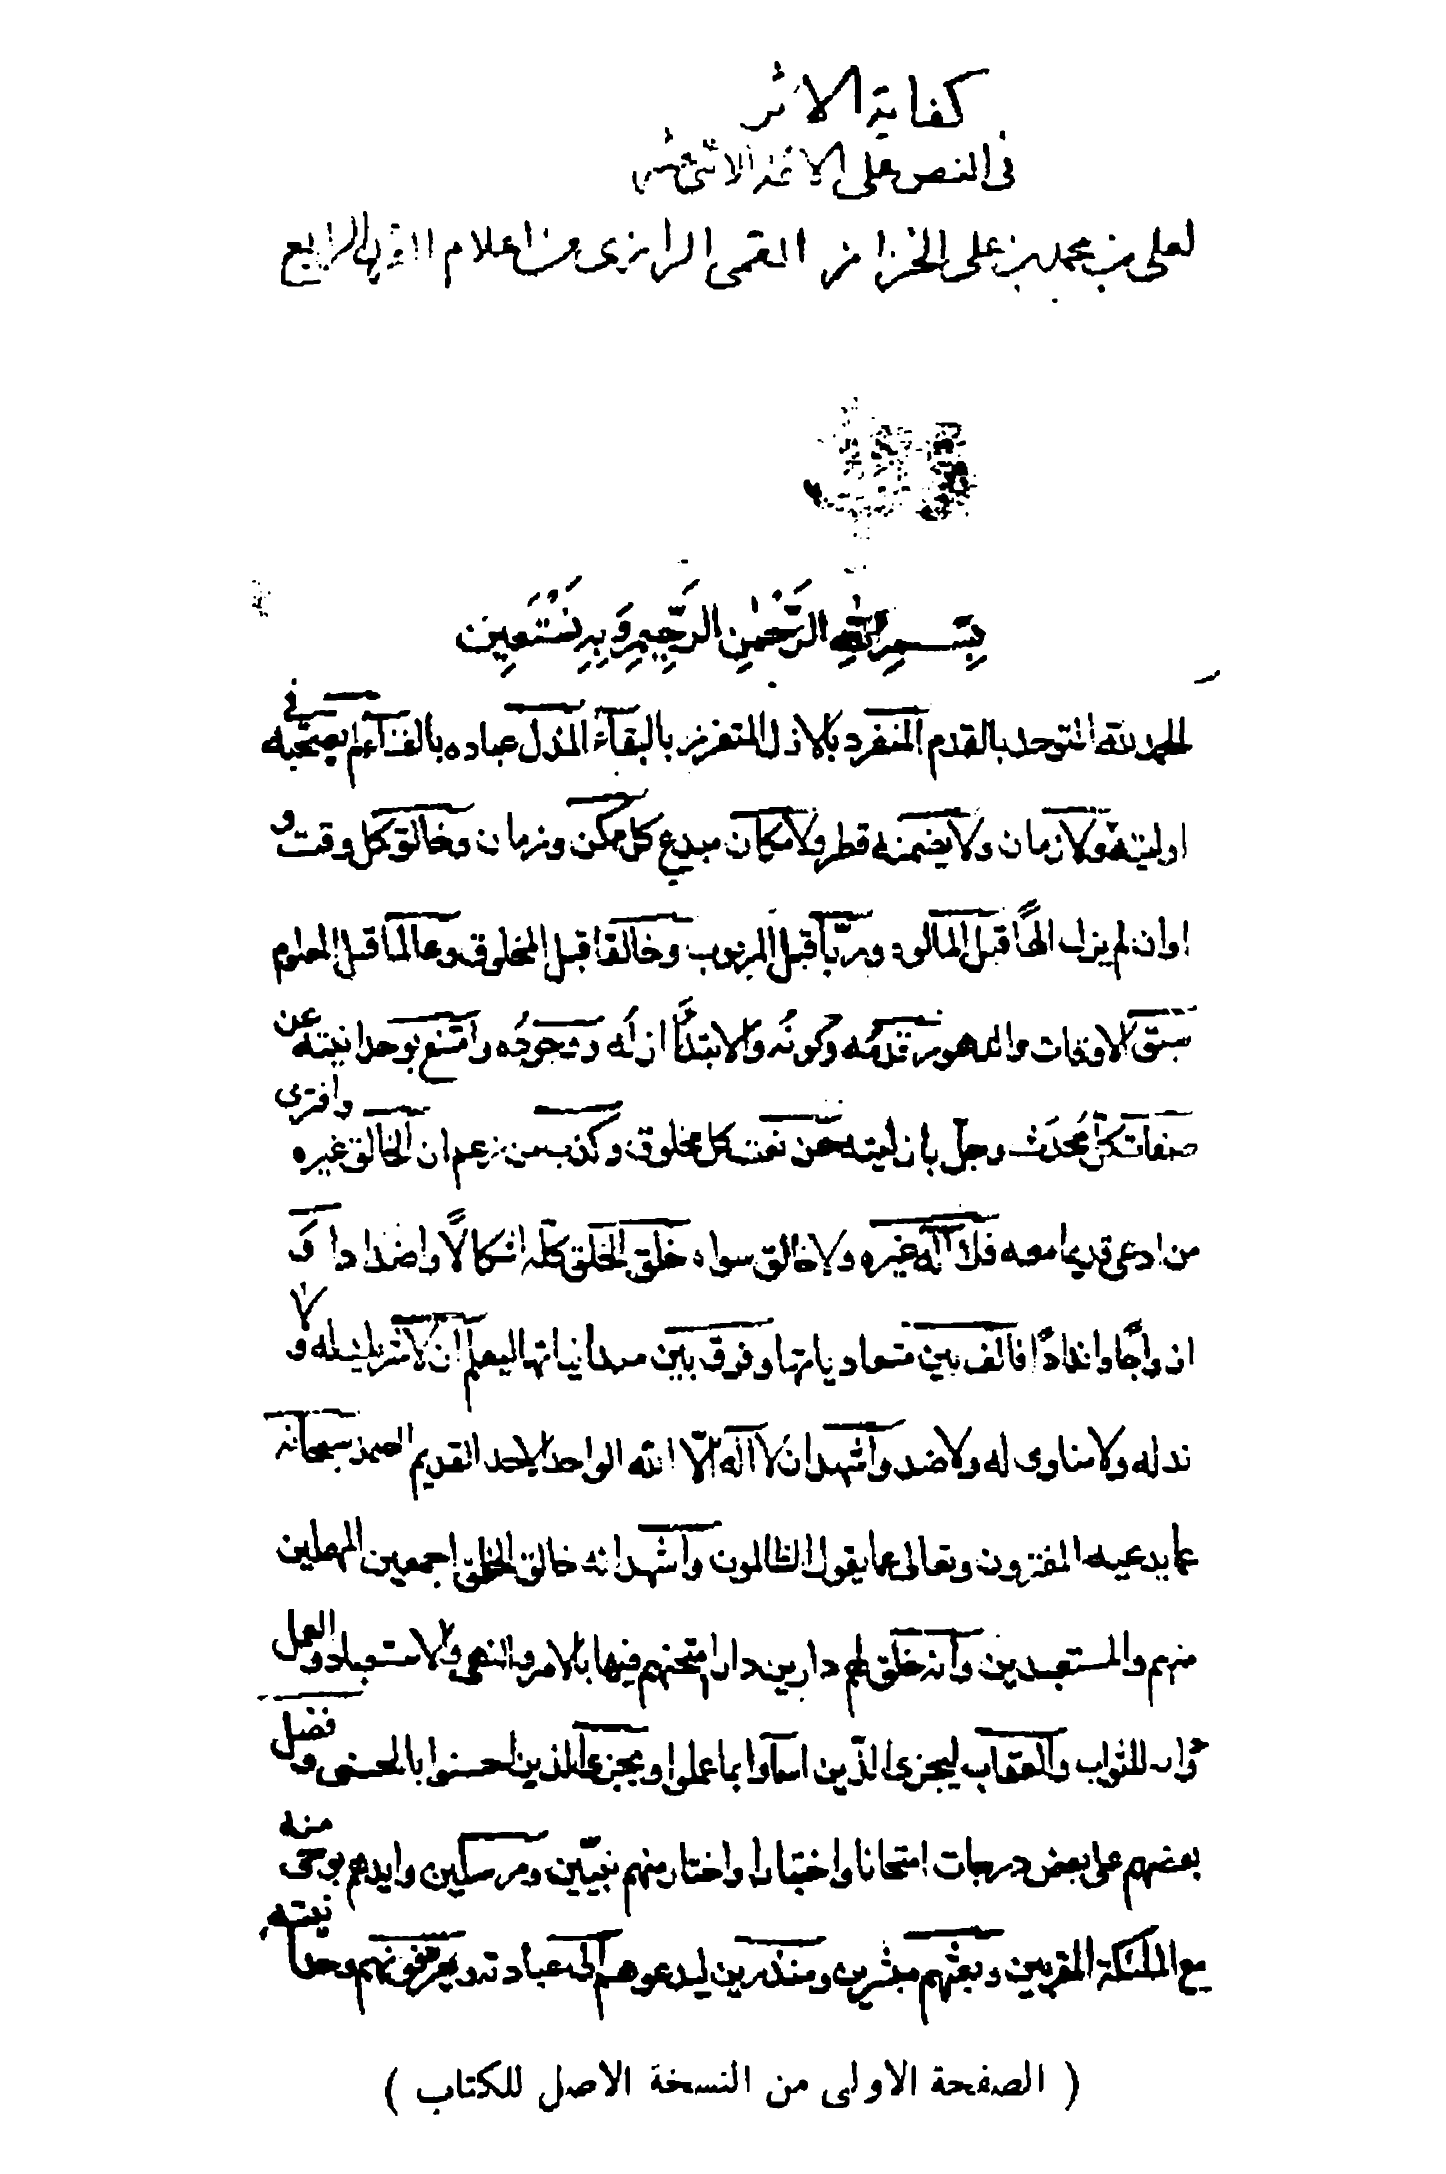 كفاية الاثر
في النص على الائمة الاثنى عشر
لعلي بن محمد بن علي الخزاز القمي الرازي من اعلام القرن الرابع
بِسْمِ اللهِ الرَّحْمٰنِ الرَّحِيمِ وَبِهِ نَسْتَعِين
الحمد لله المتوحد بالقدم المنفرد بالازل المتعزز بالبقاء المذل عباده بالفناء لم يصحبه في
اوليته ولا زمان ولا يضمنه قطر ولا مكان مبدع كل مكن وزمان وخالق كل وقت و
اوان لم يزل الهًا قبل المالوه وربّا قبل المربوب وخالقا قبل المخلوق وعالما قبل المعلوم
سبق الاوقات والدهور قدمُه وكونُه والابتداَ ازلُه ووجودُه وامتنع بوحدانيته عن
صفات كل مُحدَث وجلّ بازليته عن نعت كل مخلوق وكذب من زعم ان الخالق غيره وافترى
من ادعى قديما معه فلا اله غيره ولا خالق سواه خلق الخلق كله اشكالًا واضدادا و
ازواجًا واندادًا فالف بين متعادياتها وفرق بين متدانياتها ليعلم ان لا مثل له ولا
ند له ولا مناوى له ولا ضد واشهد ان لا اله الّا الله الواحد الاحد القديم الصمد سبحانه
عما يدعيه المفترون وتعالى عما يقول الظالمون واشهد انه خالق الخلق اجمعين المهملين
منهم والمستعبدين وانه خلق لهم دارين دار امتحنهم فيها بالامر والنهى والاستعباد والعمل
ودار للثواب والعقاب ليجزى الذين اساوا بما عملوا ويجزى الذين احسنوا بالحسنى وفضل
بعضهم على بعض درجات امتحانا واختبارا واختار منهم نبيّين ومرسلين وايدهم بوحى منه
مع الملئكة المقربين وبعثهم مبشرين ومنذرين ليدعوهم الى عبادته ويعرفونهم وحدانيته
( الصفحة الاولى من النسخة الاصل للكتاب )